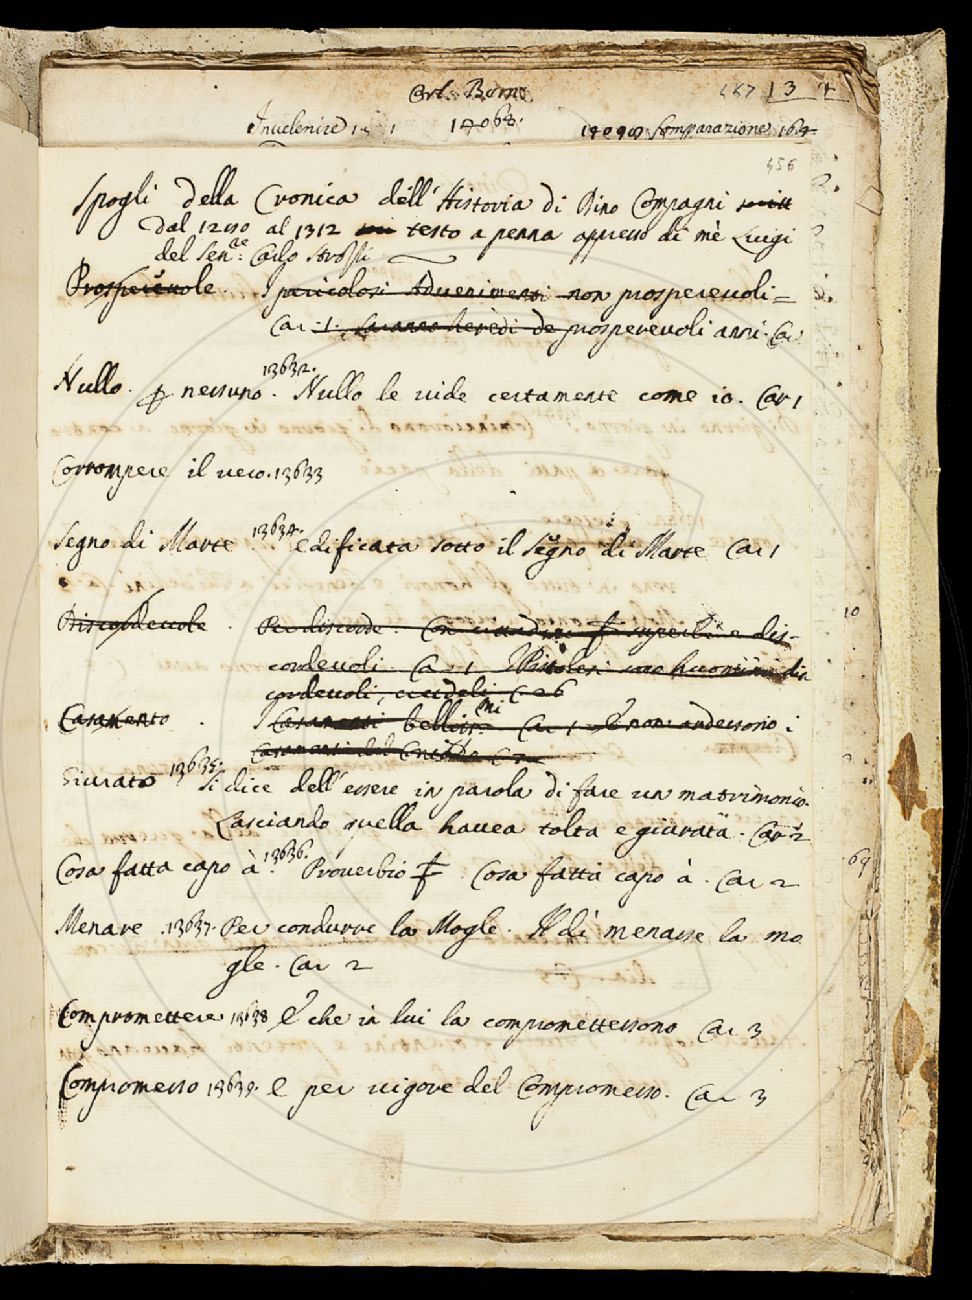 Orl. Bern.
187 13 +
Inuelenire 14068. 14090 Comparazione 164
456
Spogli della Cronica dell'Historia di Dino Compagni
Dal 1280 al 1312 testo a penna appresso di mè Luigi
del Sen.re Carlo Strozzi
Prosperevole. I pericolosi Advenimenti non prosperevoli =
Car 1. Saranno heredi de prosperevoli anni. Car
Nullo. p nessuno. 13632. Nullo le vide certamente come io. Car 1
Corrompere il vero. 13633
Segno di Marte 13634. edificata sotto il segno di Marte Car 1
Discordevole. Per discorde. superbi e dis-
cordevoli. Car 1 I Pistolesi sono huomini dis
cordevoli, crudeli C 26
Casamento. I Casamenti bellissmi Car 1 E non andessono i
Casamenti del C
Giurato 13635. Si dice dell'essere in parola di fare un matrimonio.
Lasciando quella havea tolta e giurata. Car 2
Cosa fatta capo à. 13636. Proverbio Cosa fatta capo à. Car 2
Menare. 13637. Per condurre la Mogle. Il dì menasse la mo
gle. Car 2
Compromettere 13638 E che in lui la compromettessono Car 3
Compromesso 13639. E per vigore del Compromesso. Car 3